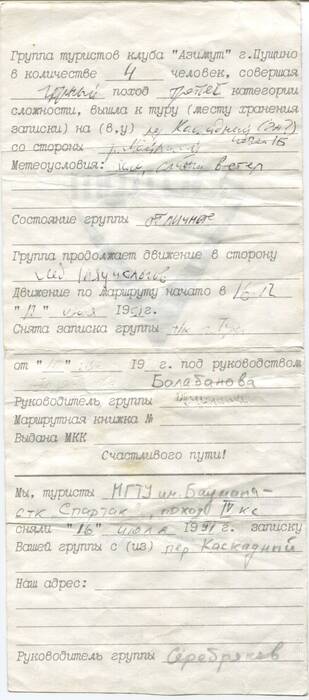 Группа туристов клуба "Азимут" г.Пущино
в количестве 4 человек, совершая
горный поход категории
сложности, вышла к туру (месту хранения
записки) на (в,у)
со стороны
Метеоусловия: ветер
Состояние группы отличное
Группа продолжает движение в сторону
лед
Движение по маршруту начато в
июля 1991г.
Снята записка группы
от " 19 г. под руководством
Балабанова
Руководитель группы
Маршрутная книжка №
Выдана МКК
Счастливого пути!
Мы, туристы МГТУ им. Баумана -
стк Спартак", похода IV кс
сняли "16" июля 1991 г. записку
Вашей группы с (из) пер Каскадный
Наш адрес:
Руководитель группы Серебряков